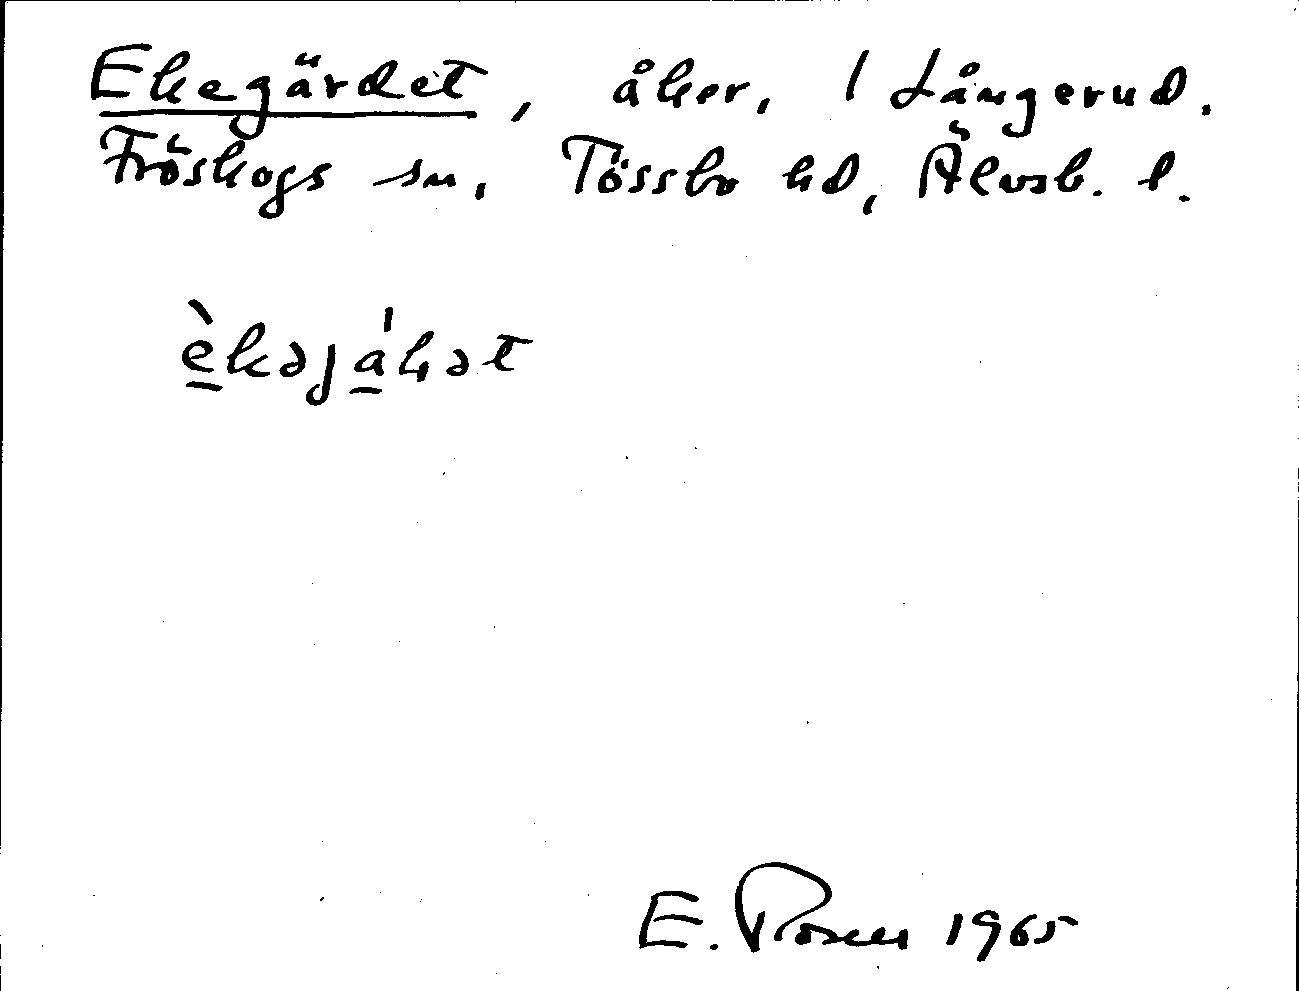 Ekegärdet, åker, 1 Långerud.
Fröskogs sn, Tössbo hd, Älvsb. l.
E. Rosen 1965